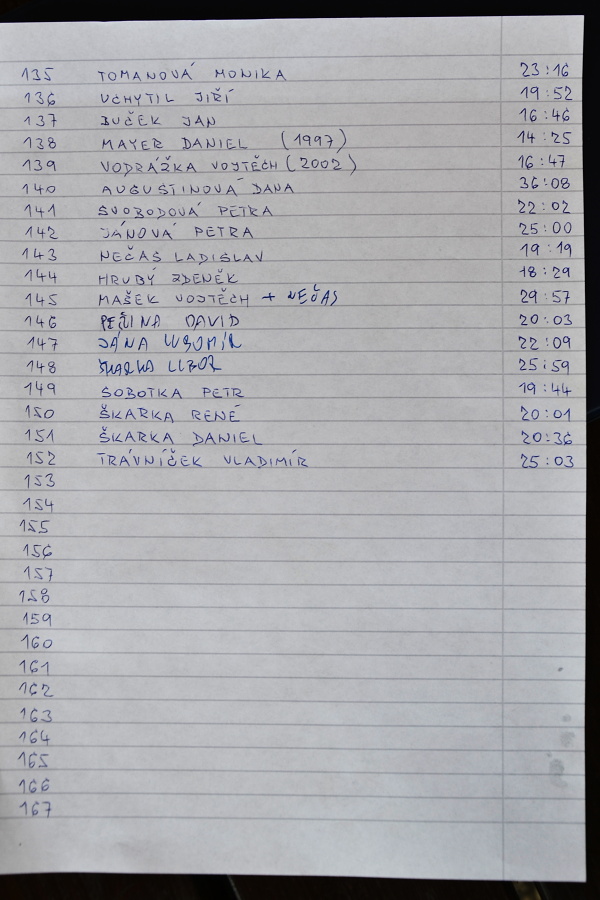 135 TOMANOVÁ MONIKA 23:16
136 UCHYTIL JIŘÍ 19:52
137 BUČEK JAN 16:46
138 MAYER DANIEL (1997) 14:25
139 VODRÁŽKA VOJTĚCH (2002) 16:47
140 AUGUSTINOVÁ DANA 36:08
141 SVOBODOVÁ PETRA 22:02
142 JÁNOVÁ PETRA 25:00
143 NEČAS LADISLAV 19:19
144 HRUBÝ ZDENĚK 18:29
145 MAŠEK VOJTĚCH + NEČAS 29:57
146 PEŠINA DAVID 20:03
147 JÁNA LUBOMÍR 22:09
148 ŠKARKA LIBOR 25:59
149 SOBOTKA PETR 19:44
150 ŠKARKA RENÉ 20:01
151 ŠKARKA DANIEL 20:36
152 TRÁVNÍČEK VLADIMÍR 25:03
153
154
155
156
157
158
159
160
161
162
163
164
165
166
167